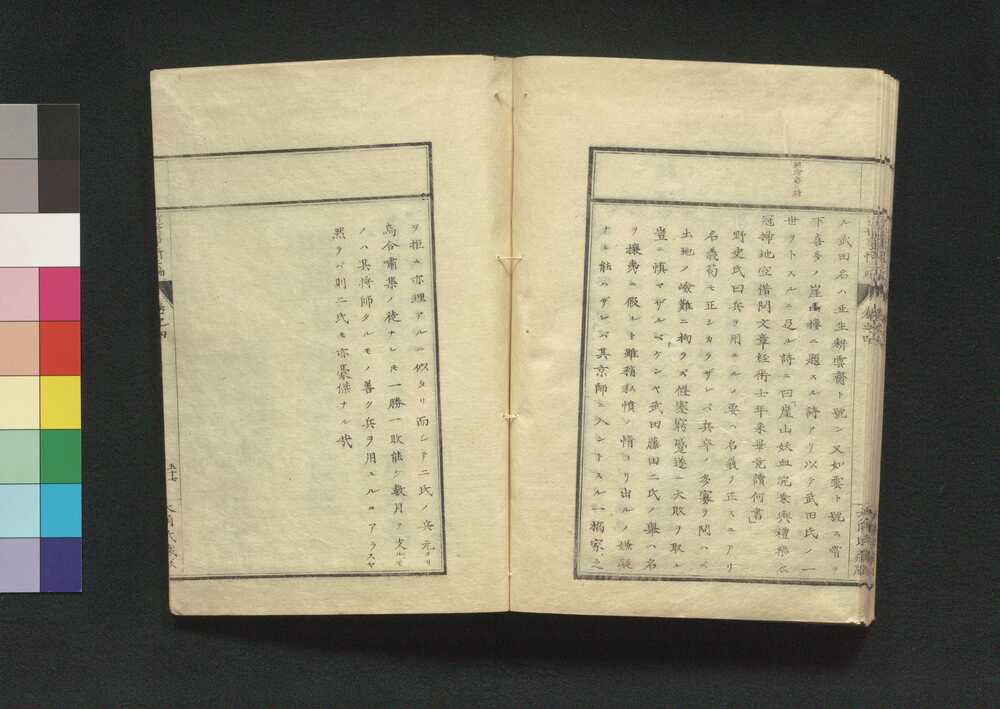 ル武田名ハ正生耕雲齋ト號シ又如雲ト號ス嘗テ
下喜多ノ崖樓ニ題スル詩アリ以テ武田氏ノ一
世ヲトスルニ足ル詩ニ曰崖山妖血浣衮輿禮樂衣
冠掃地空借問文章経術士年来畢竟讀何書」
野史氏曰兵ヲ用ユルノ要ハ名義ノ正スニアリ
名義苟モ正シカラザレバ兵卒ノ多寡ヲ問ハズ
土地ノ嶮難ニ拘ラズ性窮遂ニ大敗ヲ取ル
豈ニ慎マザルベケンヤ武田藤田二氏ノ擧ハ名
ヲ攘夷ニ假ルト雖稍私憤ノ情ヨリ出ルノ嫌疑
ナキ能ハザレバ其京師ニ入ントスル一橋家之
ヲ拒ム亦理アルニ似タリ而シテ二氏ノ兵元ヨリ
烏合嘯集ノ徒ナレドモ一勝一敗能ク數月ヲ支ルモ
ノハ其将師タルモノ善ク兵ヲ用ユルコアラスヤ
然ラバ則二氏モ亦豪傑ナル哉
五十七